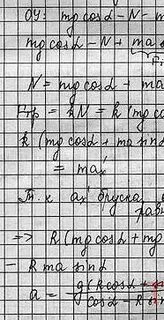 OY: mg cos α − N − m
mg cos α − N + ma
N = mg cos α + ma
Fтр = kN = k(mg co
k(mg cos α + ma sin α
= max'
Т. к ax' бруска
=> k(mg cos α + mg
− k ma sin α
a = g(k cos α + / cos α − k sin